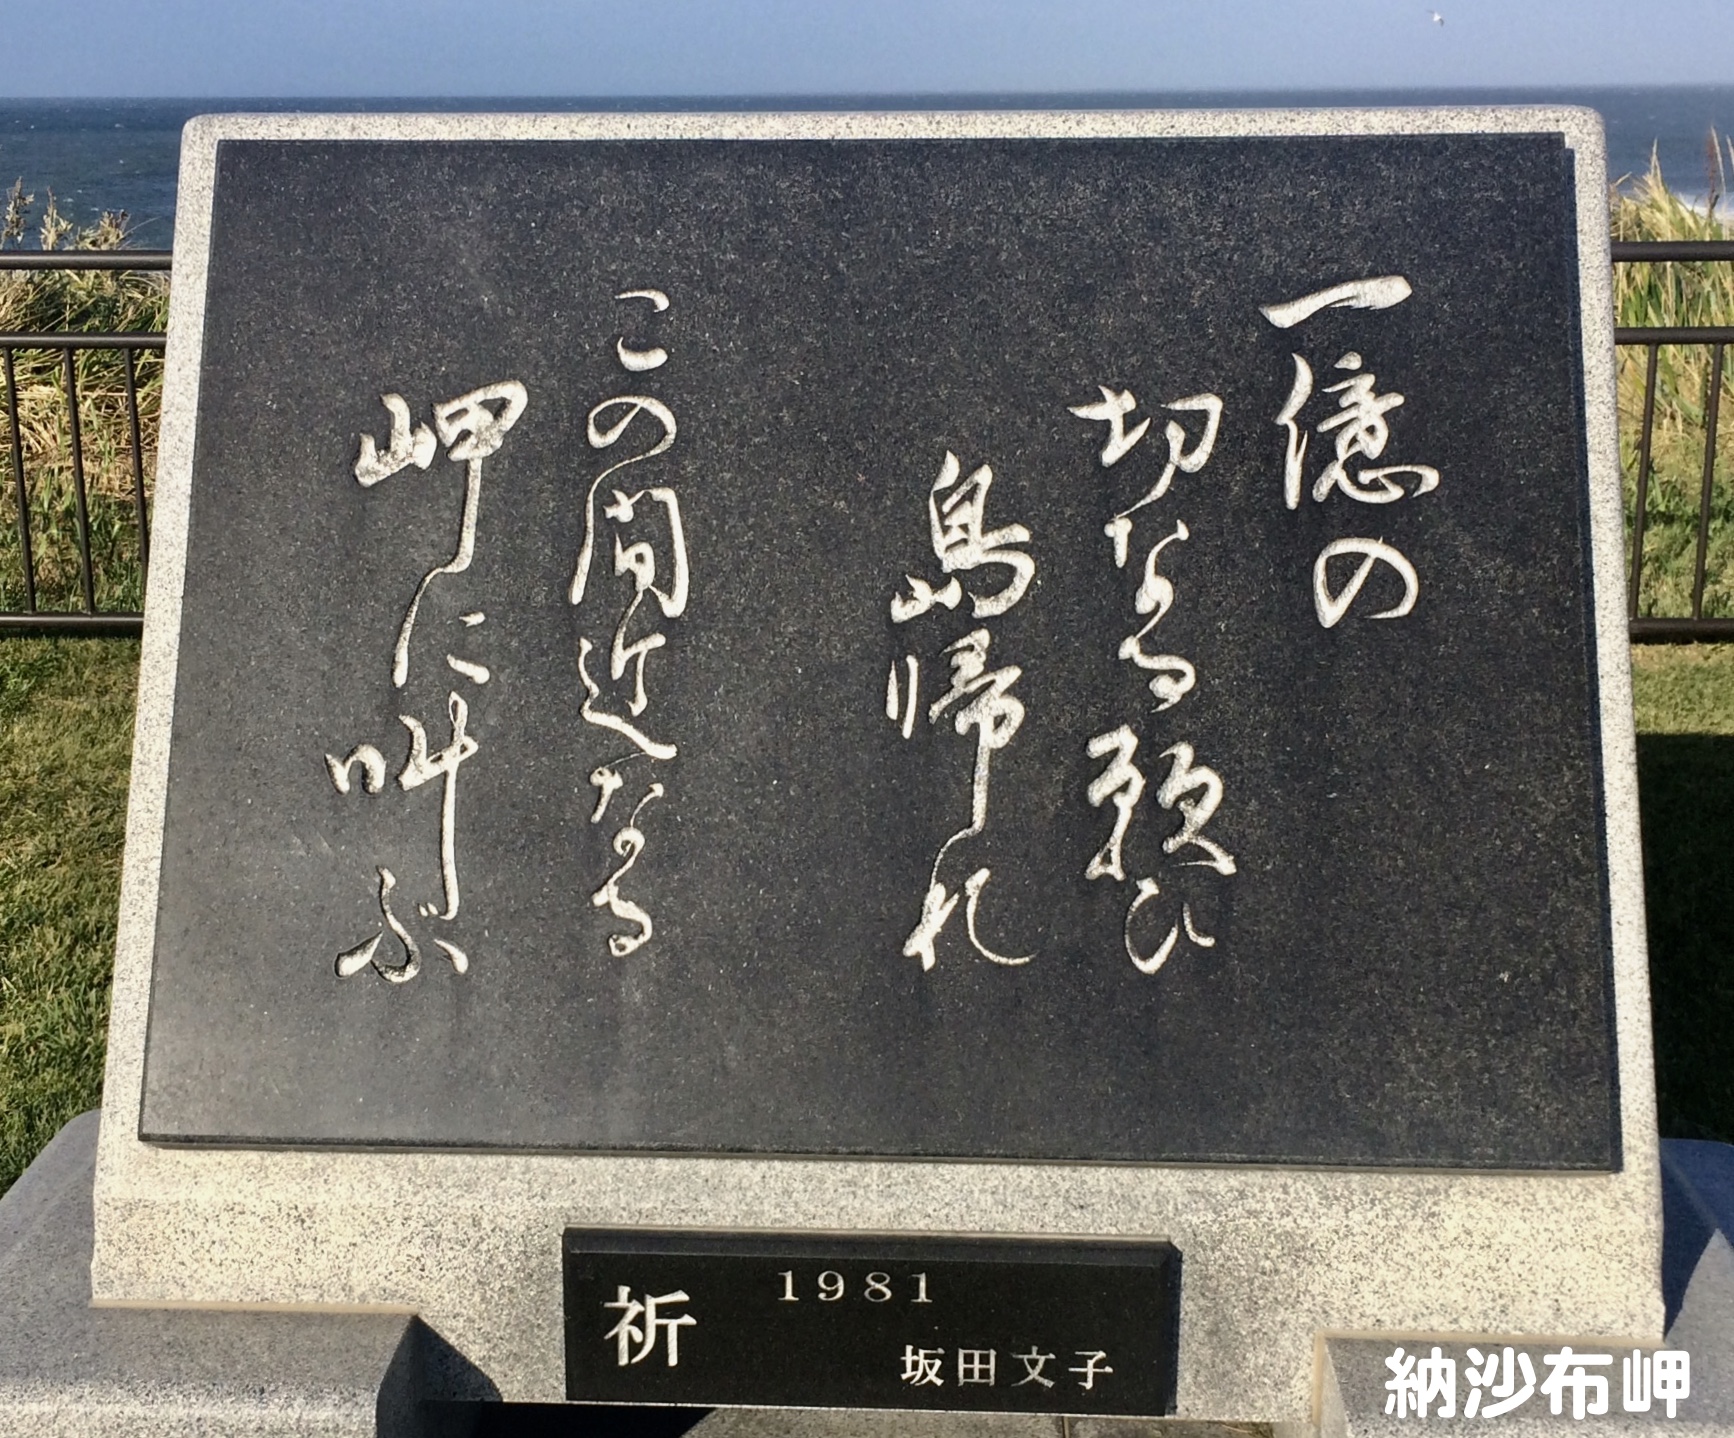 一億の
切なる願ひ
島帰れ
この間近なる
岬に叫ぶ
祈
1981
坂田文子
納沙布岬